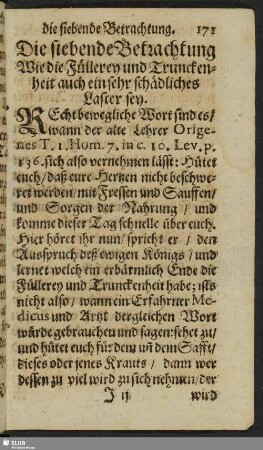 die siebende Betrachtung. 171
Die siebende Betrachtung
Wie die Füllerey und Truncken-
heit auch ein sehr schädliches
Laster sey.
REcht bewegliche Wort sind es/
wann der alte Lehrer Orige-
nes T. 1. Hom. 7. in c. 10. Lev. p.
136. sich also vernehmen lässt: Hütet
euch/ daß eure Hertzen nicht beschwe-
ret werden/ mit Fressen und Sauffen/
und Sorgen der Nahrung / und
komme dieser Tag schnelle über euch.
Hier höret ihr nun/ spricht er / den
Ausspruch deß ewigen Königs / und
lernet welch ein erbärmlich Ende die
Füllerey und Trunckenheit habe; ists
nicht also/ wann ein Erfahrner Me-
dicus und Artzt dergleichen Wort
würde gebrauchen und sagen: sehet zu/
und hütet euch für dem uñ dem Safft/
dieses oder jenes Krauts / dann wer
dessen zu viel wird zu sich nehmen/ der
J ij wird
SLUB